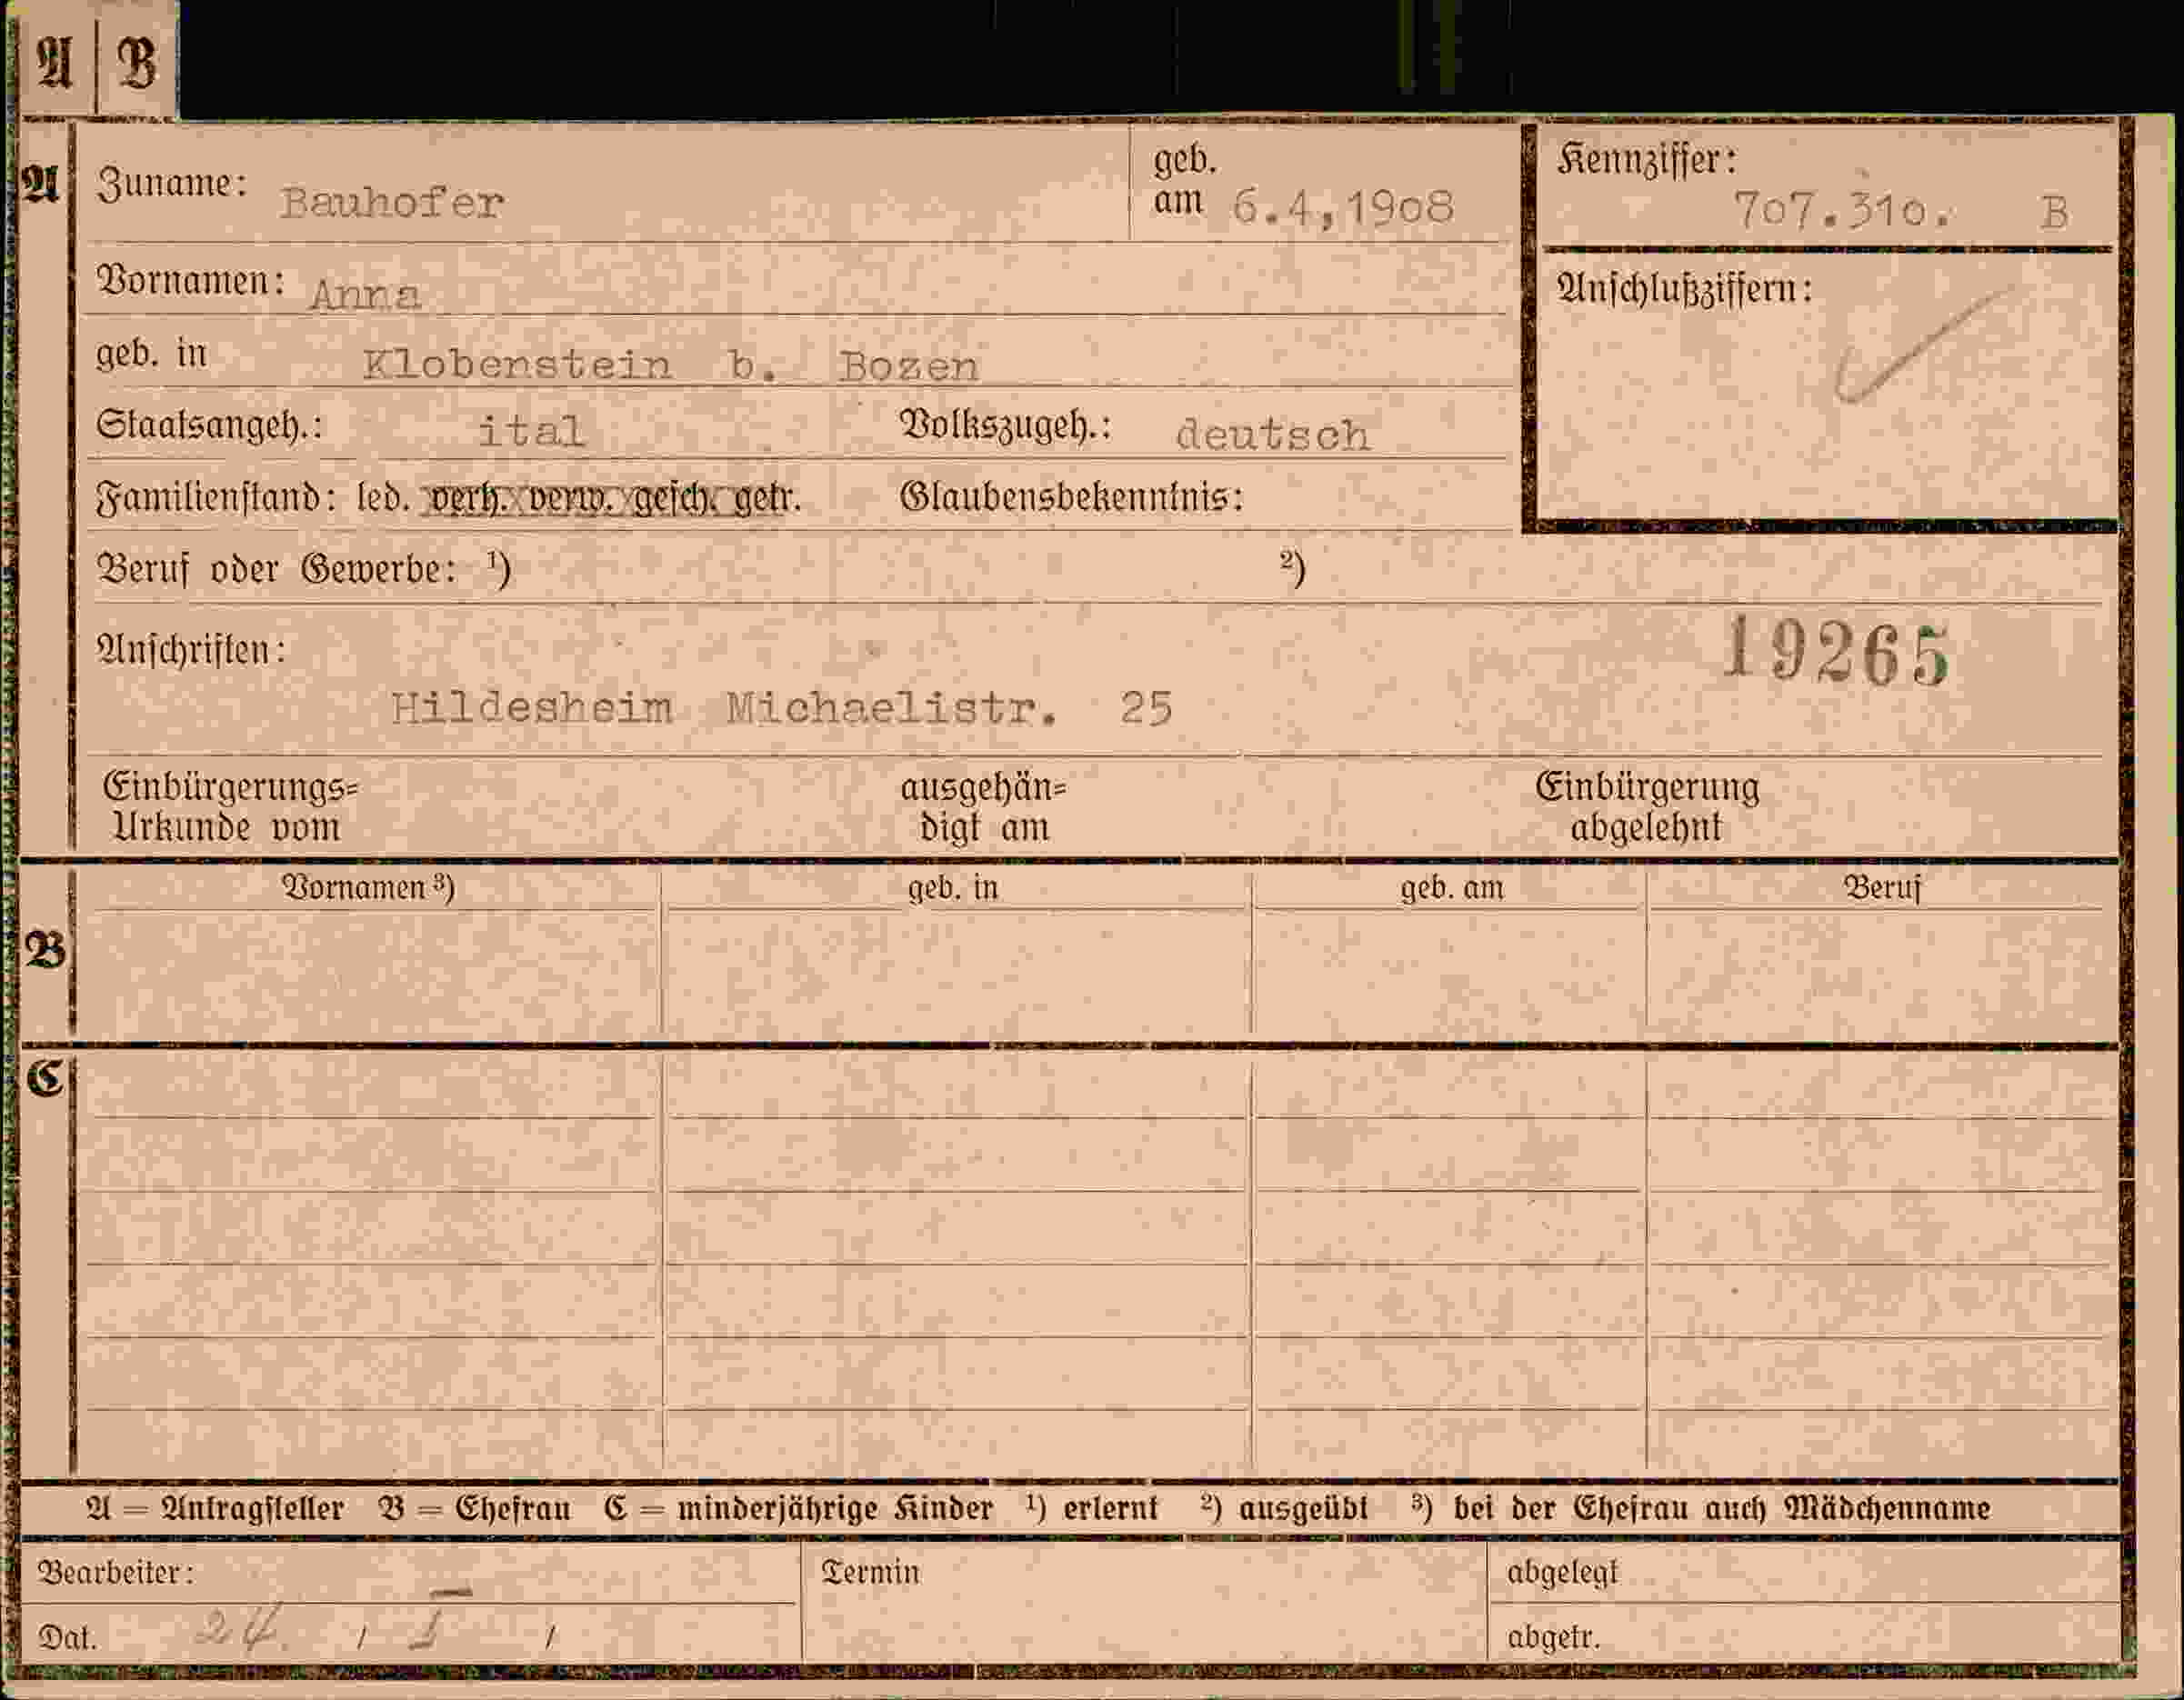 A | B
A Zuname: Bauhofer geb. am 6.4,1908 Kennziffer: 707.310. B
Vornamen: Anna Anschlußziffern:
geb. in Klobenstein b. Bozen
Staatsangeh.: ital Volkszugeh.: deutsch
Familienstand: led. verh. verw. gesch. getr. Glaubensbekenntnis:
Beruf oder Gewerbe: ¹) ²)
Anschriften: 19265
Hildesheim Michaelistr. 25
Einbürgerungs= ausgehän= Einbürgerung
Urkunde vom digt am abgelehnt
Vornamen ³) geb. in geb. am Beruf
B
C
A = Antragsteller B = Ehefrau C = minderjährige Kinder ¹) erlernt ²) ausgeübt ³) bei der Ehefrau auch Mädchenname
Bearbeiter: Termin abgelegt
Dat. 24. / / abgetr.